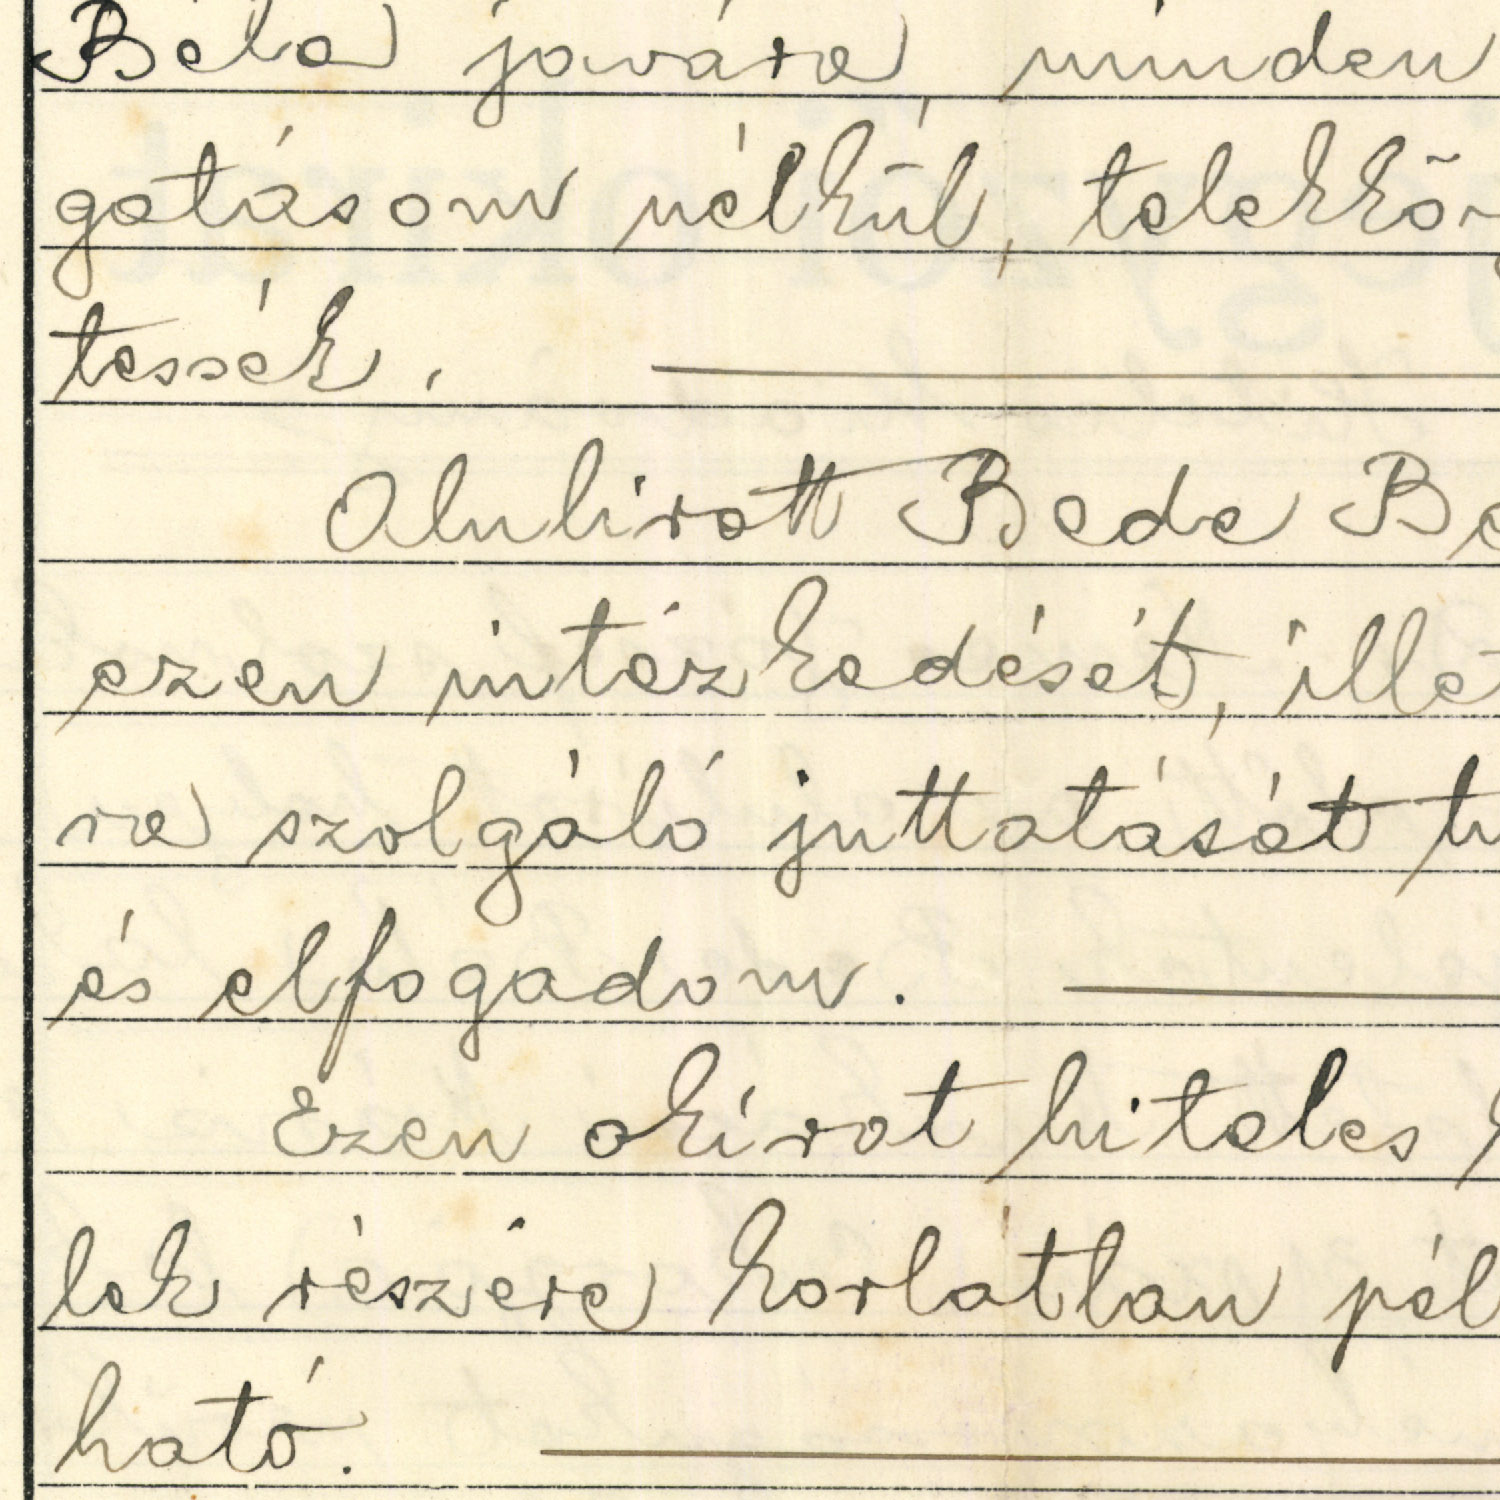 Béla javára, minden
gatásom nélkül, telekkö
tessék.
Alulirott Bede Bé
ezen intézkedését, illet
re szolgáló juttatását
és elfogadom.
Ezen okirat hiteles
lek részére korlátlan pél
ható.